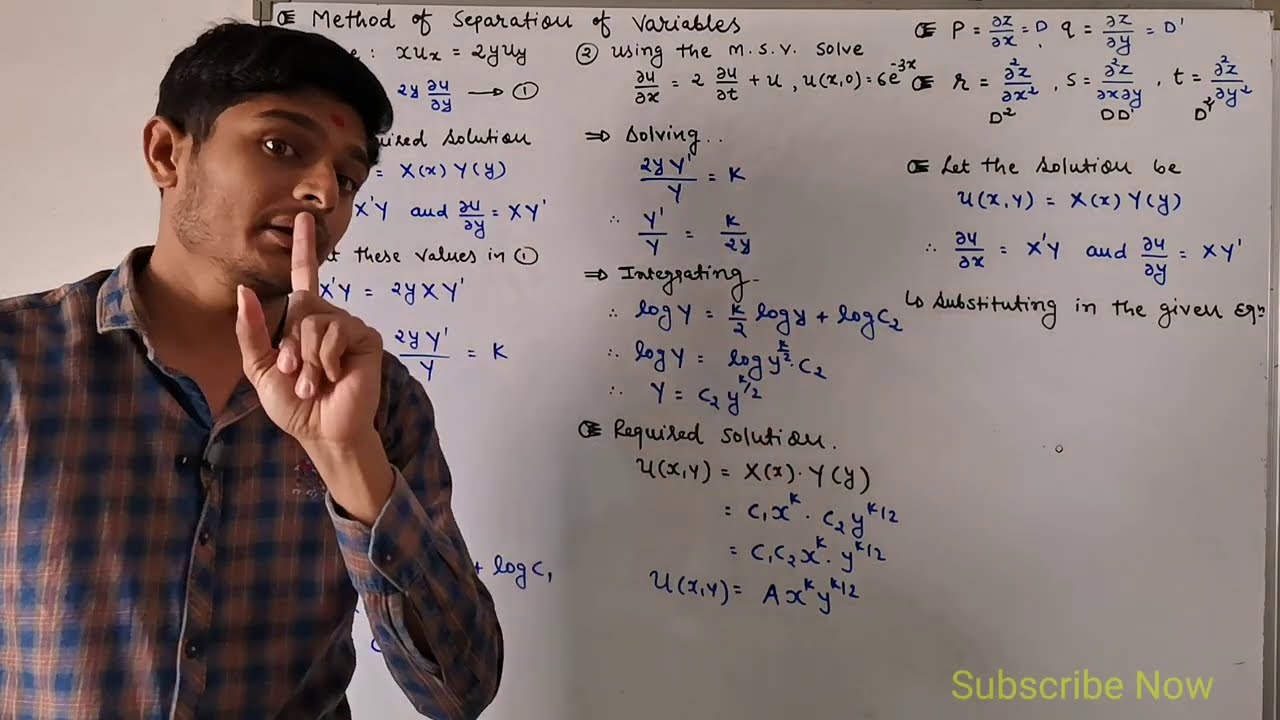 Method of Separation of Variables
: xux = 2yuy
2y ∂u/∂y → ①
Solution
= X(x) Y(y)
X'Y and ∂u/∂y = XY'
these values in ①
X'Y = 2yXY'
2yY'/Y = K
+ log C₁
② Using the M.S.V. Solve
∂u/∂x = 2 ∂u/∂t + u, u(x,0) = 6e^-3x
⇒ Solving..
2yY'/Y = K
∴ Y'/Y = K/2y
⇒ Integrating..
∴ log Y = K/2 log y + log C₂
∴ log Y = log y^K/2 · C₂
∴ Y = C₂ y^K/2
Required Solution.
U(x,y) = X(x)·Y(y)
= C₁x^K · C₂y^K/2
= C₁C₂x^K · y^K/2
U(x,y) = A x^K y^K/2
P = ∂z/∂x = D, q = ∂z/∂y = D'
r = ∂²z/∂x², s = ∂²z/∂x∂y, t = ∂²z/∂y²
D² DD'
Let the Solution be
U(x,y) = X(x) Y(y)
∴ ∂u/∂x = X'Y and ∂u/∂y = XY'
↳ Substituting in the given Eqⁿ
Subscribe Now